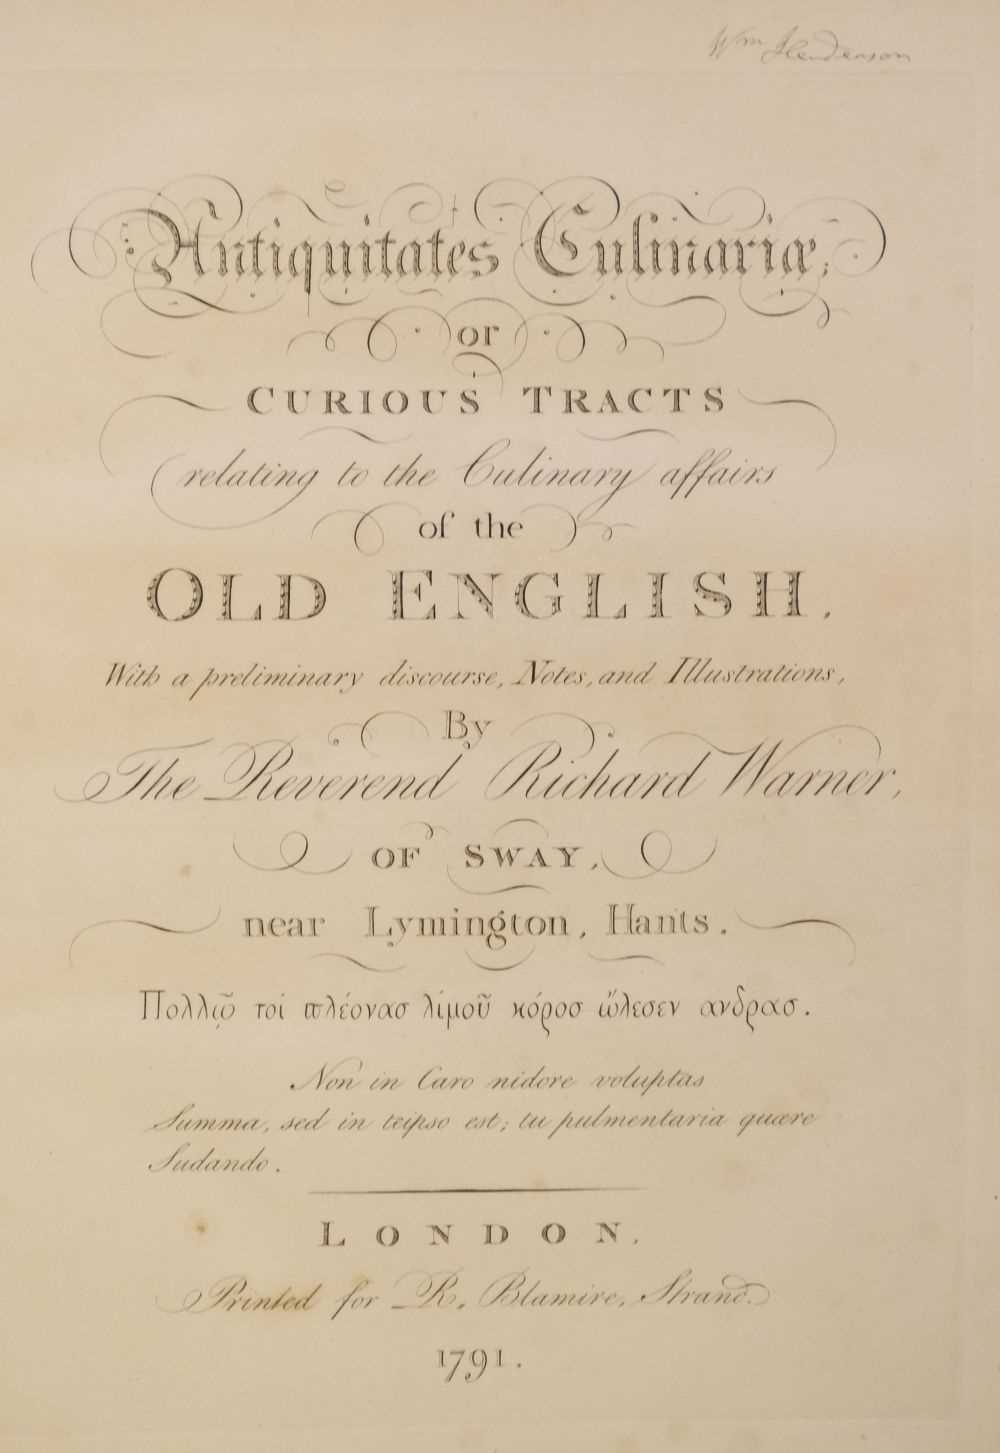 Wm Henderson
Antiquitates Culinariæ;
or
CURIOUS TRACTS
relating to the Culinary affairs
of the
OLD ENGLISH.
With a preliminary discourse, Notes, and Illustrations,
By
The Reverend Richard Warner,
OF SWAY,
near Lymington, Hants.
Πολλῷ τοί πλέονασ λίμοῦ κόροσ ὤλεσεν ανδρασ.
Non in Caro nidore voluptas
Summa, sed in teipso est; tu pulmentaria quære
Sudando.
LONDON.
Printed for R. Blamire, Strand.
1791.